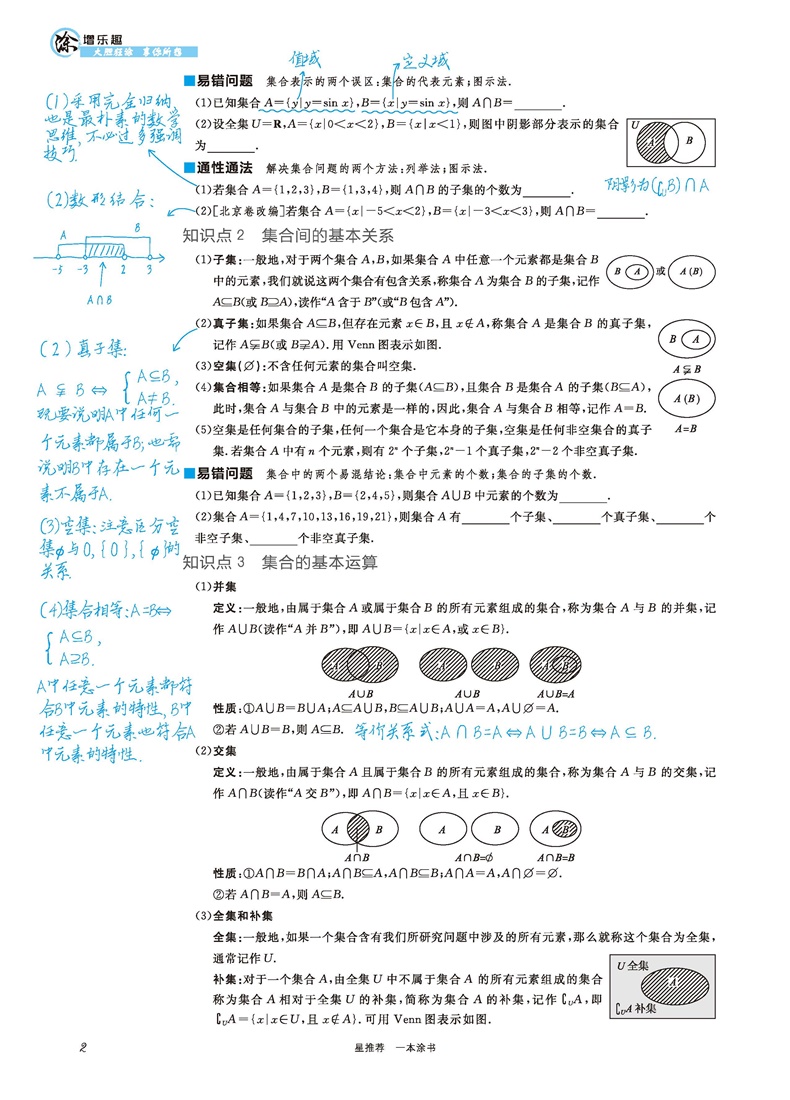 涂 增乐趣
大胆狂涂 享你所想
值域 定义域
■易错问题 集合表示的两个误区:集合的代表元素;图示法.
(1)已知集合 A={y|y=sin x},B={x|y=sin x},则 A∩B=________.
(2)设全集U=R,A={x|0<x<2},B={x|x<1},则图中阴影部分表示的集合
为________.
U A B
阴影为(∁UB)∩A
■通性通法 解决集合问题的两个方法:列举法;图示法.
(1)若集合 A={1,2,3},B={1,3,4},则 A∩B 的子集的个数为________.
(2)[北京卷改编]若集合 A={x|-5<x<2},B={x|-3<x<3},则 A∩B=________.
(1)采用完全归纳,
也是最朴素的数学
思维,不必过多强调
技巧.
(2)数形结合:
A B
-5 -3 2 3
A∩B
知识点 2 集合间的基本关系
(1)子集:一般地,对于两个集合 A,B,如果集合 A 中任意一个元素都是集合 B
中的元素,我们就说这两个集合有包含关系,称集合 A 为集合 B 的子集,记作
A⊆B(或 B⊇A),读作“A 含于 B”(或“B 包含 A”).
B A 或 A(B)
(2)真子集:如果集合 A⊆B,但存在元素 x∈B,且 x∉A,称集合 A 是集合 B 的真子集,
记作 A⫋B(或 B⫌A).用 Venn 图表示如图.
B A
A⫋B
(3)空集(∅):不含任何元素的集合叫空集.
(4)集合相等:如果集合 A 是集合 B 的子集(A⊆B),且集合 B 是集合 A 的子集(B⊆A),
此时,集合 A 与集合 B 中的元素是一样的,因此,集合 A 与集合 B 相等,记作 A=B.
A(B)
A=B
(5)空集是任何集合的子集,任何一个集合是它本身的子集,空集是任何非空集合的真子
集.若集合 A 中有 n 个元素,则有 2ⁿ 个子集,2ⁿ-1 个真子集,2ⁿ-2 个非空真子集.
(2)真子集:
A⫋B⇔{A⊆B,
A≠B.
既要说明A中任何一
个元素都属于B;也需
说明B中存在一个元
素不属于A.
(3)空集:注意区分空
集φ与0,{0},{φ}的
关系.
■易错问题 集合中的两个易混结论:集合中元素的个数;集合的子集的个数.
(1)已知集合 A={1,2,3},B={2,4,5},则集合 A∪B 中元素的个数为________.
(2)集合 A={1,4,7,10,13,16,19,21},则集合 A 有________个子集、________个真子集、________个
非空子集、________个非空真子集.
(4)集合相等:A=B⇔
{A⊆B,
A⊇B.
A中任意一个元素都符
合B中元素的特性,B中
任意一个元素也符合A
中元素的特性.
知识点 3 集合的基本运算
(1)并集
定义:一般地,由属于集合 A 或属于集合 B 的所有元素组成的集合,称为集合 A 与 B 的并集,记
作 A∪B(读作“A 并 B”),即 A∪B={x|x∈A,或 x∈B}.
A B A B A B
A∪B A∪B A∪B=A
性质:①A∪B=B∪A;A⊆A∪B,B⊆A∪B;A∪A=A,A∪∅=A.
②若 A∪B=B,则 A⊆B. 等价关系式:A∩B=A⇔A∪B=B⇔A⊆B.
(2)交集
定义:一般地,由属于集合 A 且属于集合 B 的所有元素组成的集合,称为集合 A 与 B 的交集,记
作 A∩B(读作“A 交 B”),即 A∩B={x|x∈A,且 x∈B}.
A B A B A B
A∩B A∩B=φ A∩B=B
性质:①A∩B=B∩A;A∩B⊆A,A∩B⊆B;A∩A=A,A∩∅=∅.
②若 A∩B=A,则 A⊆B.
(3)全集和补集
全集:一般地,如果一个集合含有我们所研究问题中涉及的所有元素,那么就称这个集合为全集,
通常记作 U.
补集:对于一个集合 A,由全集 U 中不属于集合 A 的所有元素组成的集合
称为集合 A 相对于全集 U 的补集,简称为集合 A 的补集,记作 ∁UA,即
∁UA={x|x∈U,且 x∉A}.可用 Venn 图表示如图.
U 全集
A
∁UA 补集
2 星推荐 一本涂书